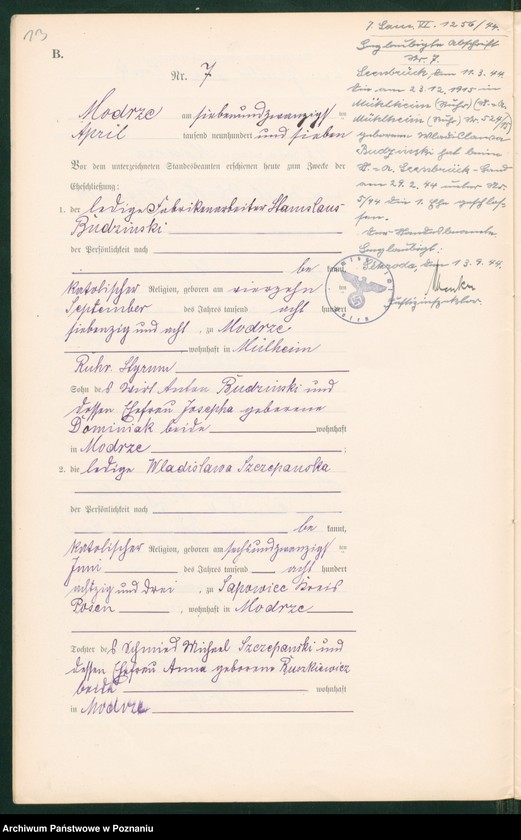 13
B.
Nr. 7
Modrze am siebenundzwanzigsten
April tausend neunhundert und sieben
Vor dem unterzeichneten Standesbeamten erschienen heute zum Zwecke der
Eheschließung:
1. der ledige Fabrikenarbeiter Stanislaus
Budzinski
der Persönlichkeit nach
be kannt,
katolischer Religion, geboren am vierzehn ten
September des Jahres tausend acht hundert
siebenzig und acht, zu Modrze
, wohnhaft in Mülheim
Ruhr. Styrum
Sohn des Wirt Anton Budzinski und
dessen Ehefrau Josepha geborene
Dominiak beide wohnhaft
in Modrze ;
2. die ledige Wladislawa Szczepanska
der Persönlichkeit nach
be kannt,
katolischer Religion, geboren am sechsundzwanzigsten
Juni des Jahres tausend acht hundert
achtzig und drei, zu Sapowice Kreis
Posen, wohnhaft in Modrze
Tochter des Schmied Michael Szczepanski und
dessen Ehefrau Anna geborene
beide wohnhaft
in Modrze
VI. 1256/44.
Beglaubigte Abschrift
Nr. 7.
den 11.3.44.
Die am 23.12.1905 in
Mühlheim (Ruhr) (St.-A.
Mühlheim (Ruhr) Nr. 529/
geborene Wladislawa
Budzinski hat beim
St.-A.
am 29.2.44 unter Nr.
5/44 die 1. Ehe geschlos-
sen.
Der Standesbeamte.
Beglaubigt:
den 13.9.44.
Justizinspektor.
Archiwum Państwowe w Poznaniu